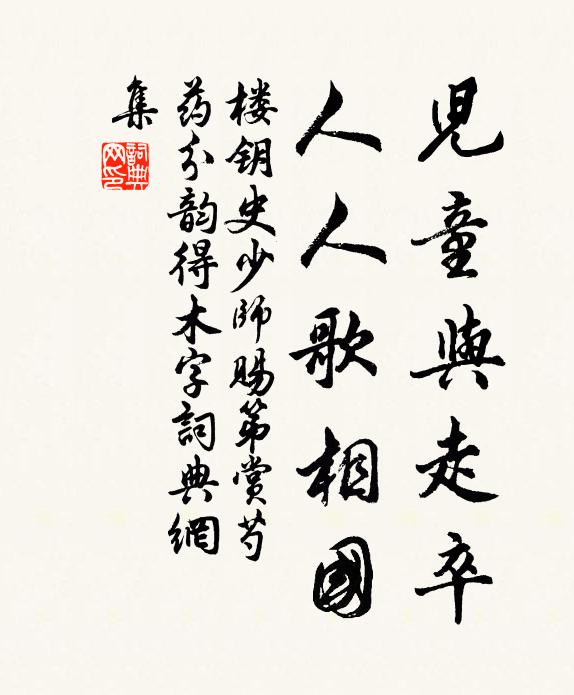 兒童與走卒
人人歌相國
楼钥史少師賜第賞芍
药分韵得木字詞典網
集
詞典
网印